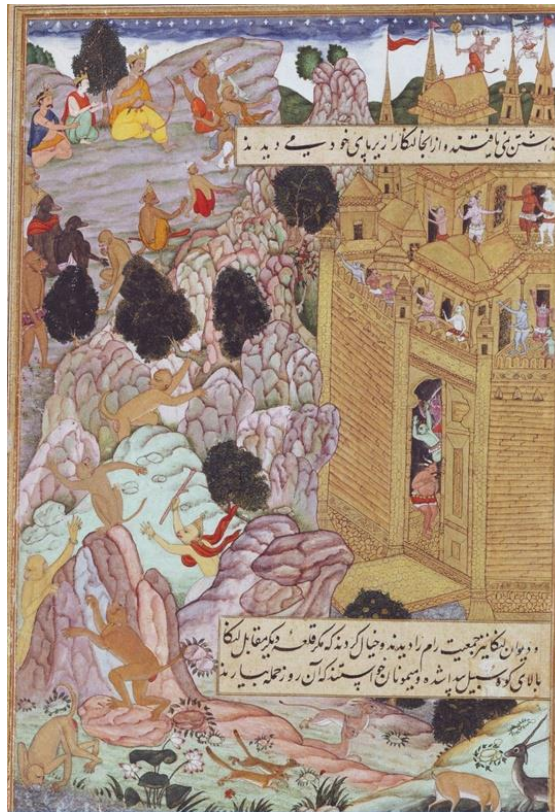 یافتند و از انجا لنکا را زیر پای خود می دیدند
و دیوان لنکا نیز جمعیت رام را دیدند و خیال کردند که مکر قلعهٔ دیکر مقابل لنکا
بالای کوه سبیل پیدا شده و میمونان خواستند که آن روز حمله بیارند